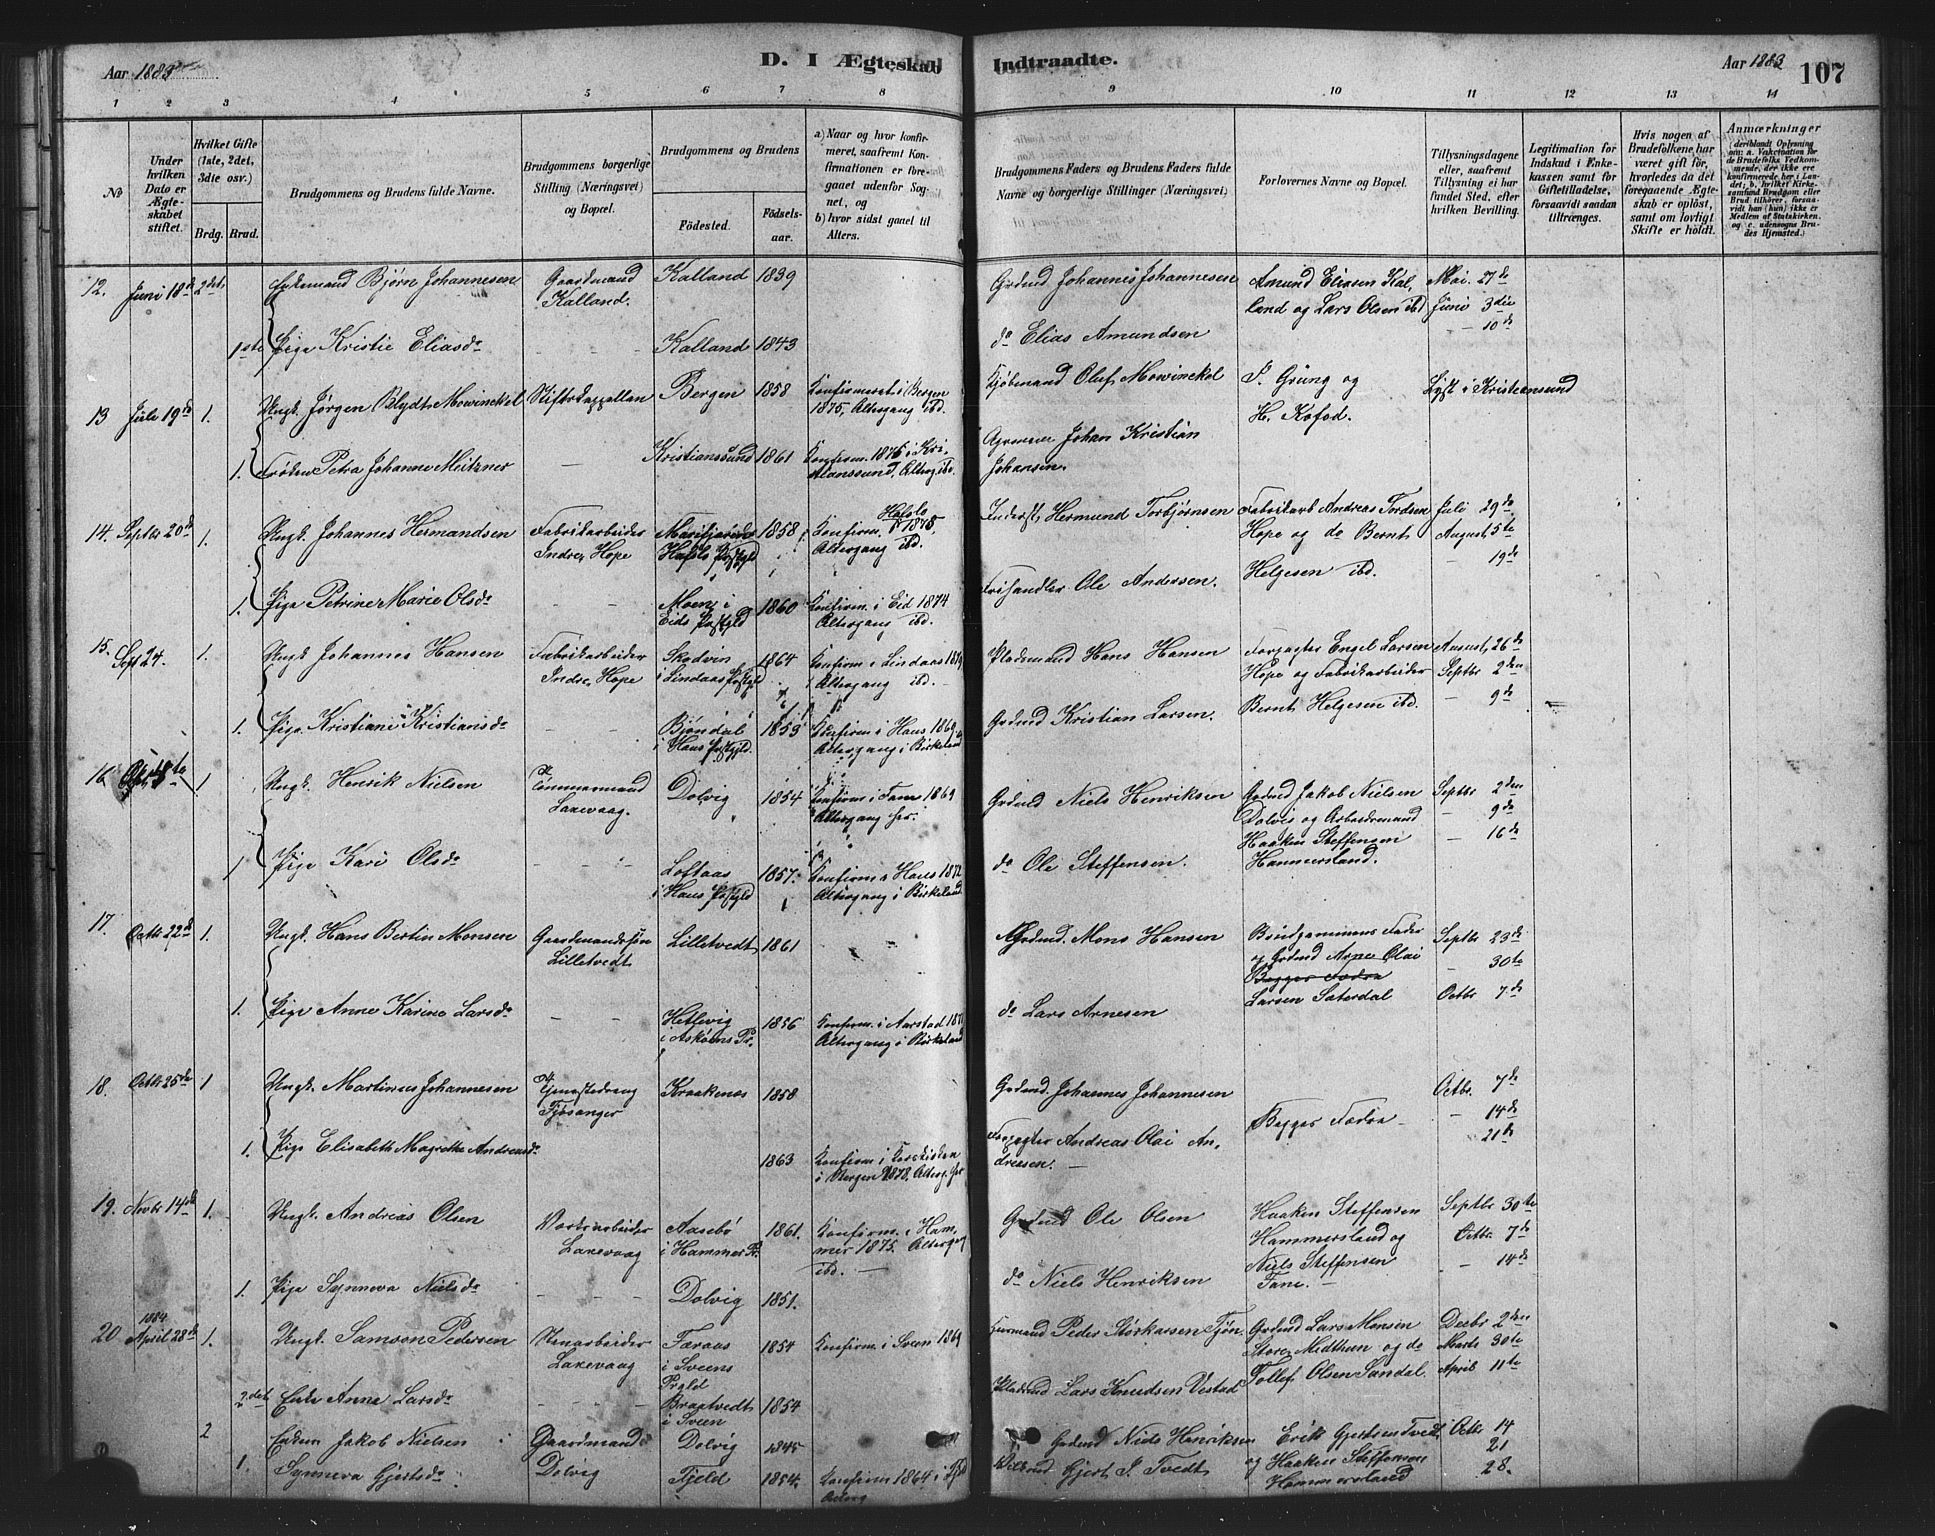 Aar 1883
D. I Ægteskab Indtraadte.
Aar 1883
107
1 2 3 4 5 6 7 8 9 10 11 12 13 14
No
Under hvilken Dato er Ægteskabet stiftet.
Hvilket Gifte (1ste, 2det, 3die osv.)
Brdg. Brud.
Brudgommens og Brudens fulde Navne.
Brudgommens borgerlige Stilling (Næringsvei) og Bopæl.
Brudgommens og Brudens
Fødested.
Fødselsaar.
a) Naar og hvor konfirmeret, saafremt Konfirmationen er foregaaet udenfor Sognet, og
b) hvor sidst gaaet til Alters.
Brudgommens Faders og Brudens Faders fulde Navne og borgerlige Stillinger (Næringsvei)
Forlovernes Navne og Bopæl.
Tillysningsdagene eller, saafremt Tillysning ei har fundet Sted, efter hvilken Bevilling.
Legitimation for Indskud i Enkekassen samt for Giftetilladelse, forsaavidt saadan tiltrænges.
Hvis nogen af Brudefolkene har været gift før, hvorledes da det foregaaende Ægteskab er opløst, samt om lovligt Skifte er holdt.
Anmærkninger
(deriblandt Oplysning om: a. Vakcination for de Brudefolks Vedkommende, der ikke ere konfirmerede her i Landet; b. hvilket Kirkesamfund Brudgom eller Brud tilhører, forsaavidt han (hun) ikke er Medlem af Statskirken, og c. udensogns Brudes Hjemsted.)
12. Juni 18de 2det Enkemand Bjørn Johannesen Gaardmand Kalland. Kalland 1839
Grdmd Johannes Johannesen Amund Eliasen Kalland og Lars Olsen ibd Mai. 27de Juni 3die
- 10de
1ste Pige Kristie Eliasdr - - - Kalland 1843
do Elias Amundsen
13 Juli 19de 1. Ungk. Jørgen Blydt Mowinckel Stiftskappellan Bergen 1858 Konfirmeret i Bergen 1875, Altergang ibd.
Kjøbmand Oluf Mowinckel P. Grung og H. Kofod. Lyst i Kristiansund
1. Frøken Petra Johanne Meitzner - - Kristianssund 1861 Konfirm. 1876 i Kristianssund, Alterg. ibd.
Johan Kristian Johansen.
14. Septbr 20de 1. Ungk. Johannes Hermandsen Fabrikarbeider Indre Hope Marifjæren Hafslo Præstgjld 1858 Konfirm. Hafslo 1873, Altergang ibd.
Inderst Hermund Torbjørnsen Fabrikarb Andreas Tordsen Hope og do Bernt Helgesen ibd. Juli 29de August 5te
- 19de
1. Pige Petrine Marie Olsdr - - Moen i Eids Præstgjld 1860 Konfirm. i Eid 1874 Altergang ibd.
Frihandler Ole Anderssen.
15. Sept 24. 1. Ungk Johannes Hansen Fabrikarbeider Indre Hope Skodvin i Lindaas Præstgjld 1864 Konfirm i Lindaas 1879 Altergang ibd.
Pladsmand Hans Hansen Forpagter Engel Larsen Hope og Fabrikarbeider Bernt Helgesen ibd. August 26de Septbr 2den
- 9de
1. Pige Kristiane Kristiansdr - - Bjøndal i Haus Præstgjld. 1853 Konfirm i Haus 1869 Altergang i Birkeland
Grdmd Kristian Larsen.
16. 1 Ungk. Henrik Nielsen Tømmermand Laxevaag. Dolvig 1854 Konfirm. i Fane 1869 Altergang her.
Grdmd Niels Henriksen Grdmd Jakob Nielsen Dolvig og Arbeidsmand Haakon Steffensen Hammersland. Septbr 2den
- 9de
- 16de
1 Pige Kari Olsdr - - Loftaas i Haus Præstgjld 1857. Konfirm i Haus 1872 Altergang i Birkeland
do Ole Steffensen.
17. Octbr 22de 1. Ungk. Hans Bertin Monsen Gaardmandssøn Lilletvedt Lilletvedt 1861 - -
Grdmd. Mons Hansen Brudgommens Fader og Grdmd Arne Olai Begges Fædre Larsen Sæterdal Septbr 23de
- 30te
Octbr 7de
1. Pige Anne Karine Larsdr - - Hetlevig i Askøens Pr. 1856 Konfirm. i Aarstad 1871 Altergang i Birkeland
do Lars Arnesen
18. Octbr 25de 1 Ungk. Martinus Johannesen Tjenestedreng Fjøsanger Kraakenæs 1858
Grdmd. Johannes Johannesen Begges Fædre - Octbr. 7de
- 14de
21de
1. Pige Elisabeth Magrethe Andreasdr 1863 Konfirm. i Korskirken i Bergen 1878, Alterg. her
Forpagter Andreas Olai Andreesen. -
19. Novbr 14de 1. Ungk. Andreas Olsen Værksarbeider Laxevaag Aasebø i Hammer Pr. 1861. Konfirm. i Hammer 1875. Altergang ibd. -
Grdmd Ole Olsen Haakon Steffensen Hammersland og Niels Steffensen Fane. - Septbr 30te
Octbr. 7de
- 14de
1. Pige Synneva Nielsdr - - - Dolvig 1851.
do Niels Henriksen
20 1884 April 28de 1. Ungk. Samson Pedersen Stenarbeider Laxevaag Taraas i Sveens Prgld 1854 Konfirm. i Sveen 1869
Huusmand Peder Storkarsen Tjøn. Grdmd Lars Monsen Store Midthun og do Tollef Olsen Sandal. Decbr 2den Marts 30te April 11te
2det Enke Anna Larsdr - - - Braatvedt i Sveen 1854
Pladsmd Lars Knudsen Vestad
2 Enkem Jakob Nielsen Gaardmand Dolvig Dolvig 1845
Grdmd Niels Henriksen Erik Gjertsen Tvedt og Haakon Steffensen Hammersland Octbr 14
21
28.
1. Synneva Gjertsdr Fjeld 1854. Konfirm 1864 i Fjeld
Gjert I. Tvedt